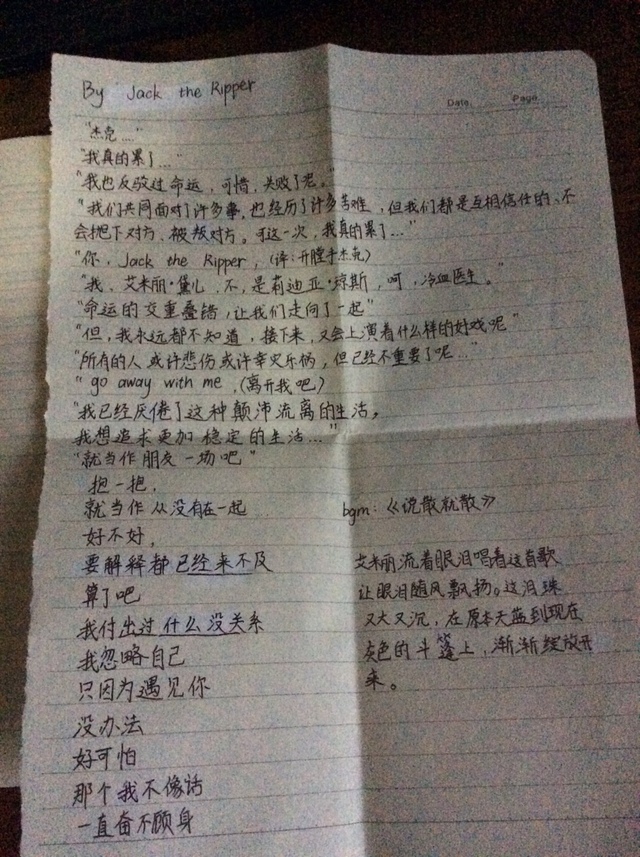 By Jack the Ripper
Date. Page.
"杰克…"
"我真的累了…"
"我也反驳过命运，可惜，失败了老。"
"我们共同面对了许多事，也经历了许多苦难，但我们都是互相信任的、不
会抛下对方、被叛对方。可这一次，我真的累了…"
"你，Jack the Ripper，(译：开膛手杰克)
"我、艾米丽·黛儿、不，是莉迪亚·琼斯，呵，冷血医生。"
"命运的交重叠错，让我们走向了一起"
"但，我永远都不知道，接下来，又会上演着什么样的好戏呢"
"所有的人或许悲伤或许幸灾乐祸，但已经不重要了呢…"
"go away with me，(离开我吧)
"我已经厌倦了这种颠沛流离的生活，
我想追求更加稳定的生活…"
"就当作朋友一场吧"
抱一抱，
就当作从没有在一起
好不好，
要解释都已经来不及
算了吧
我付出过什么没关系
我忽略自己
只因为遇见你
没办法
好可怕
那个我不像话
一直奋不顾身
bgm：《说散就散》
艾米丽流着眼泪唱着这首歌
让眼泪随风飘扬。这泪珠
又大又沉，在原本天蓝到现在
灰色的斗篷上，渐渐绽放开
来。